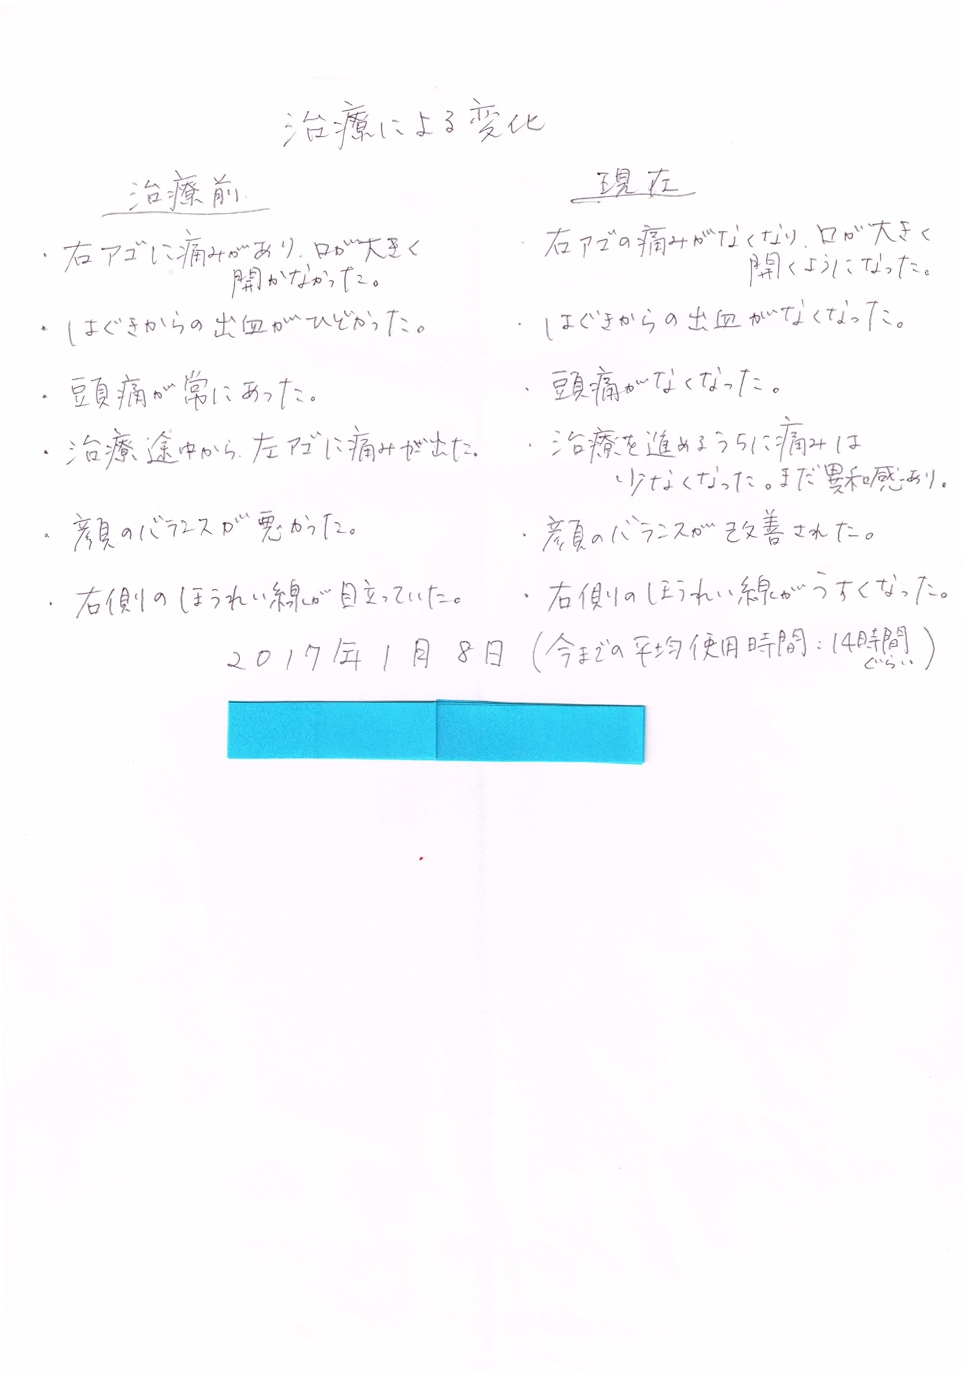 治療による変化
治療前
・右アゴに痛みがあり、口が大きく
開かなかった。
・はぐきからの出血がひどかった。
・頭痛が常にあった。
・治療途中から、左アゴに痛みが出た。
・顔のバランスが悪かった。
・右側のほうれい線が目立っていた。
現在
・右アゴの痛みがなくなり、口が大きく
開くようになった。
・はぐきからの出血がなくなった。
・頭痛がなくなった。
・治療を進めるうちに痛みは
少なくなった。まだ異和感あり。
・顔のバランスが改善された。
・右側のほうれい線がうすくなった。
2017年1月8日(今までの平均使用時間:14時間
ぐらい)